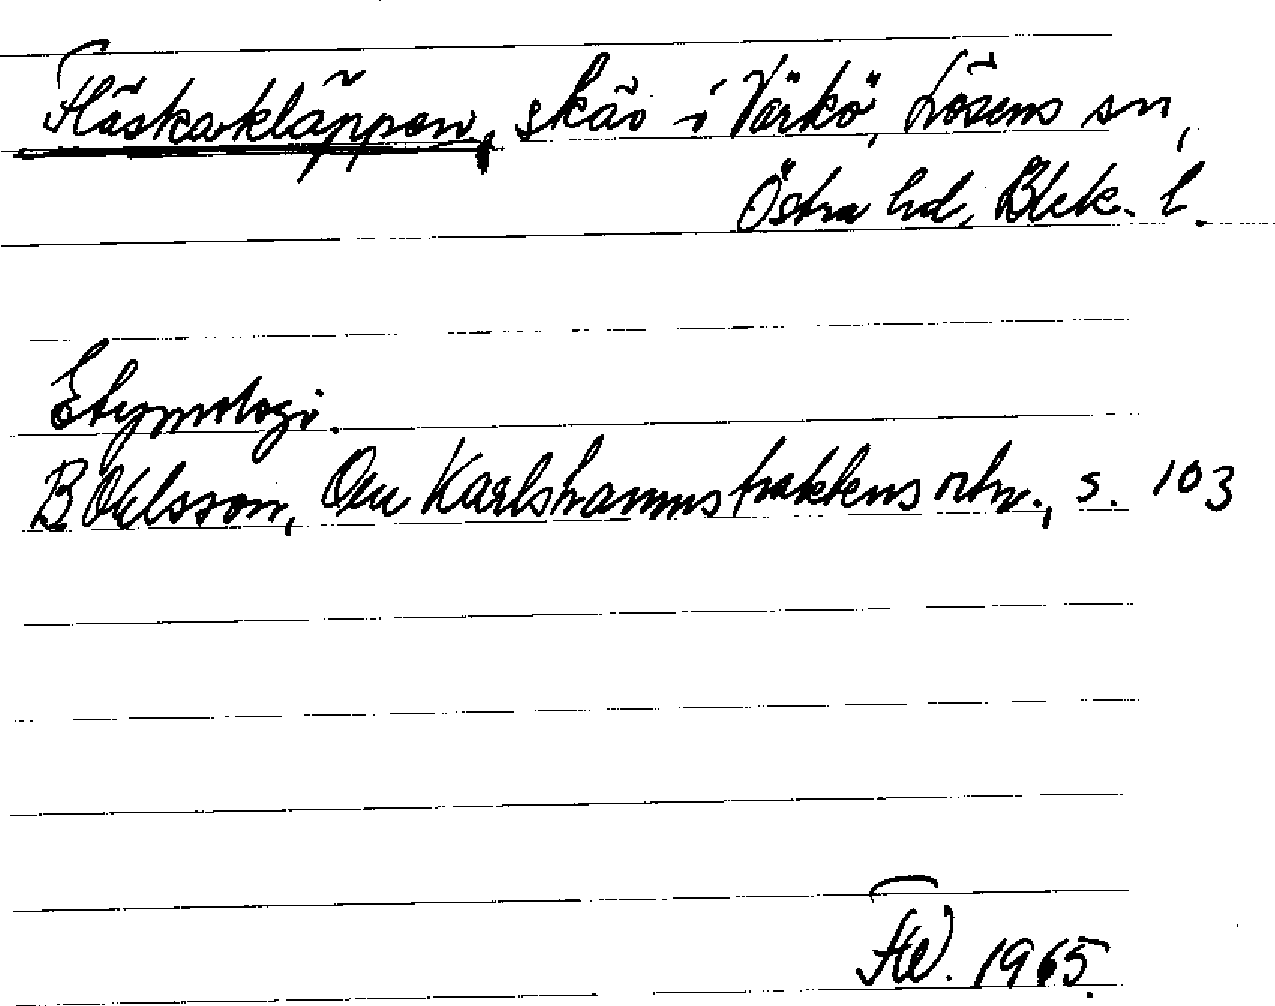 Fläskakläppen, skär i Verkö, Lösens sn,
Östra hd, Blek. l.
Etymologi.
B Ohlsson, Om Karlshamnstraktens ortn., s. 103
FW. 1965.